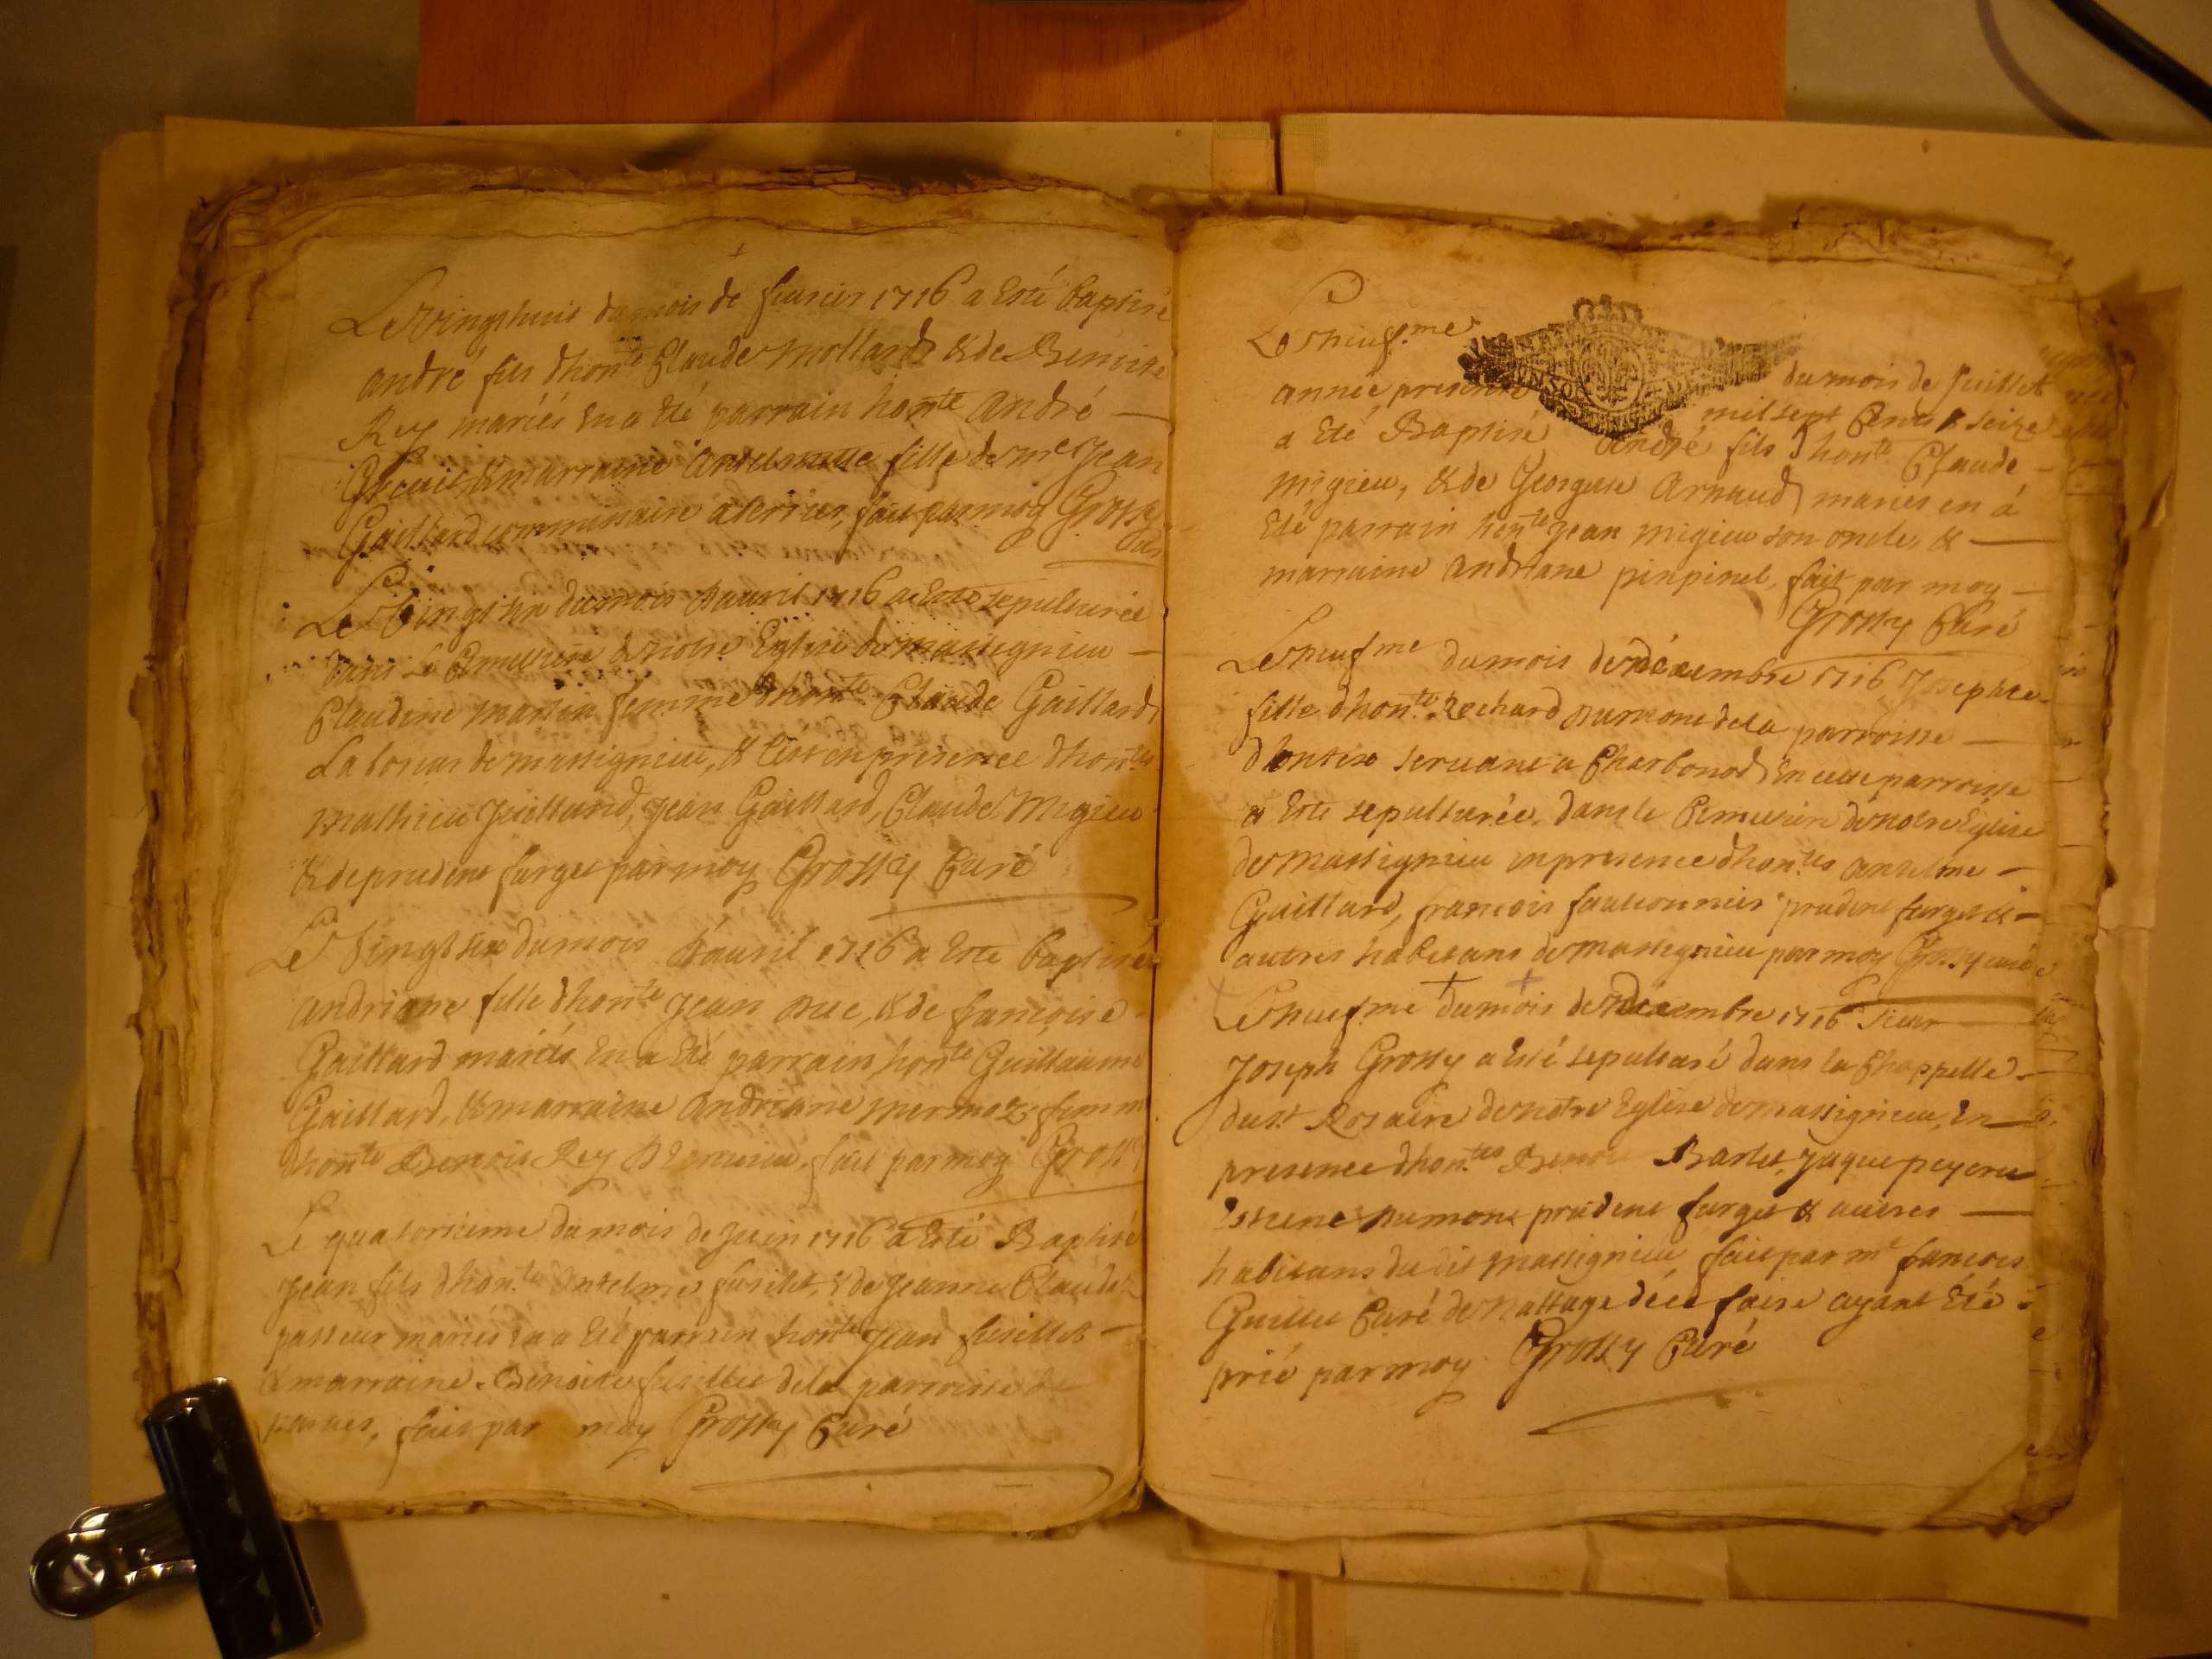 Le vingthuit du mois de feurier 1716 a Esté baptisé
andré fils dhonte Claude Mollard & de Benoite
Rey mariés en a Eté parrain honte André —
& marraine fille de me Jean
Gaillard commissaire a terrier, fait par moy Grossy
Curé
Le Vingt du mois dauril 1716 a Esté sepulturée
dans Le Cimetiere de notre Eglise de massignieu —
Claudine martin femme dhonte Claude Gaillard
Laboureur de massignieu, & C'est en presence dhontes
mathieu Juilland, Jean Gaillard, Claude Migieu
& de prudent furget par moy Grossy Curé
Le Vingt six du mois d'auril 1716 a Esté baptisée
andriane fille dhonte Jean Duc, & de francoise
Gaillard mariés En a Eté parrain honte Guillaume
Gaillard, & marraine andriane mermoz femme
dhonte Benoit Rey fait par moy Grossy
Le quatorzieme du mois de Juin 1716 a Esté Baptisé
Jean fils dhonte Antelme fusillet, & de Jeanne Claudine
passeur mariés en a Eté parrain honte Jean fusillet —
& marraine Benoite fusillet de la parroisse de
parues, fait par moy Grossy Curé
Le neufme du mois de Juillet
année presente mil sept Cents & seize
a Eté Baptisé André fils dhonte Claude —
migieu, & de Georgete Arnaud mariés en á
Eté parrain honte Jean migieu son oncle, & —
marraine andriane pinpinel, fait par moy —
Grossy Curé
Le neufme du mois de décembre 1716 Josephte
fille dhonte Rechard Dumont de la parroisse —
seruante a Charbonod En cette parroisse
a Esté sepulturée, dans le Cimetiere de notre Eglise
de Massignieu en presence dhontes antelme —
Gaillard, francois fauconnier prudent furget & —
autres habitans de massignieu par moy Grossy curé
Le neufme du mois de décembre 1716 Sieur —
Joseph Grossy a Esté sepulturé dans la Chappelle
du st Rosaire de notre Eglise de massignieu, En —
presence dhontes Benoit Barlet, Jaque peycru
Estiene Dumont prudent furget & autres —
habitans du dit massignieu, fait par me francois
Guillet Curé de Nattage de ce faire ayant Eté
prié par moy Grossy Curé